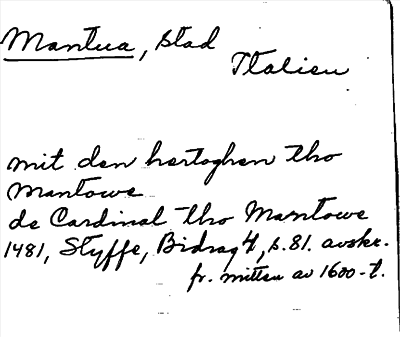 Mantua, stad
Italien
mit den hertoghen tho
Mantowe
de Cardinal tho Mantowe
1481, Styffe, Bidrag 4, s. 81. avskr.
fr. mitten av 1600-t.